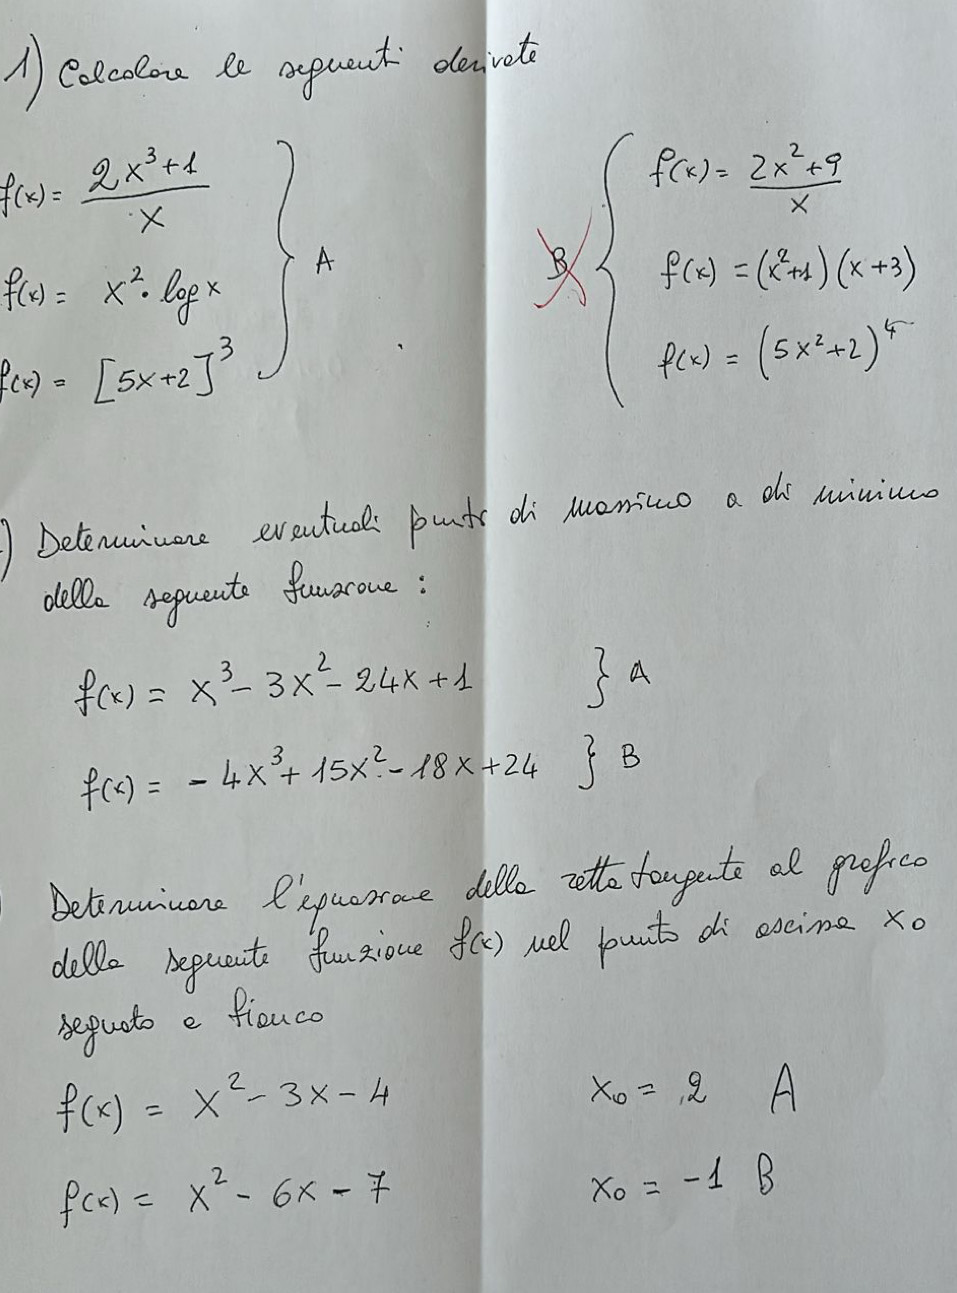 1) Calcolare le seguenti derivate
f(x) = (2x³+1)/x
f(x) = x² · log x
f(x) = [5x+2]³
} A
B {
f(x) = (2x²+9)/x
f(x) = (x²+1)(x+3)
f(x) = (5x²+2)⁴
) Determinare eventuali punti di massimo o di minimo
della seguente funzione :
f(x) = x³ - 3x² - 24x + 1 } A
f(x) = - 4x³ + 15x² - 18x + 24 } B
Determinare l'equazione della retta tangente al grafico
della seguente funzione f(x) nel punto di ascissa x₀
segnato a fianco
f(x) = x² - 3x - 4 x₀ = 2 A
f(x) = x² - 6x - 7 x₀ = -1 B